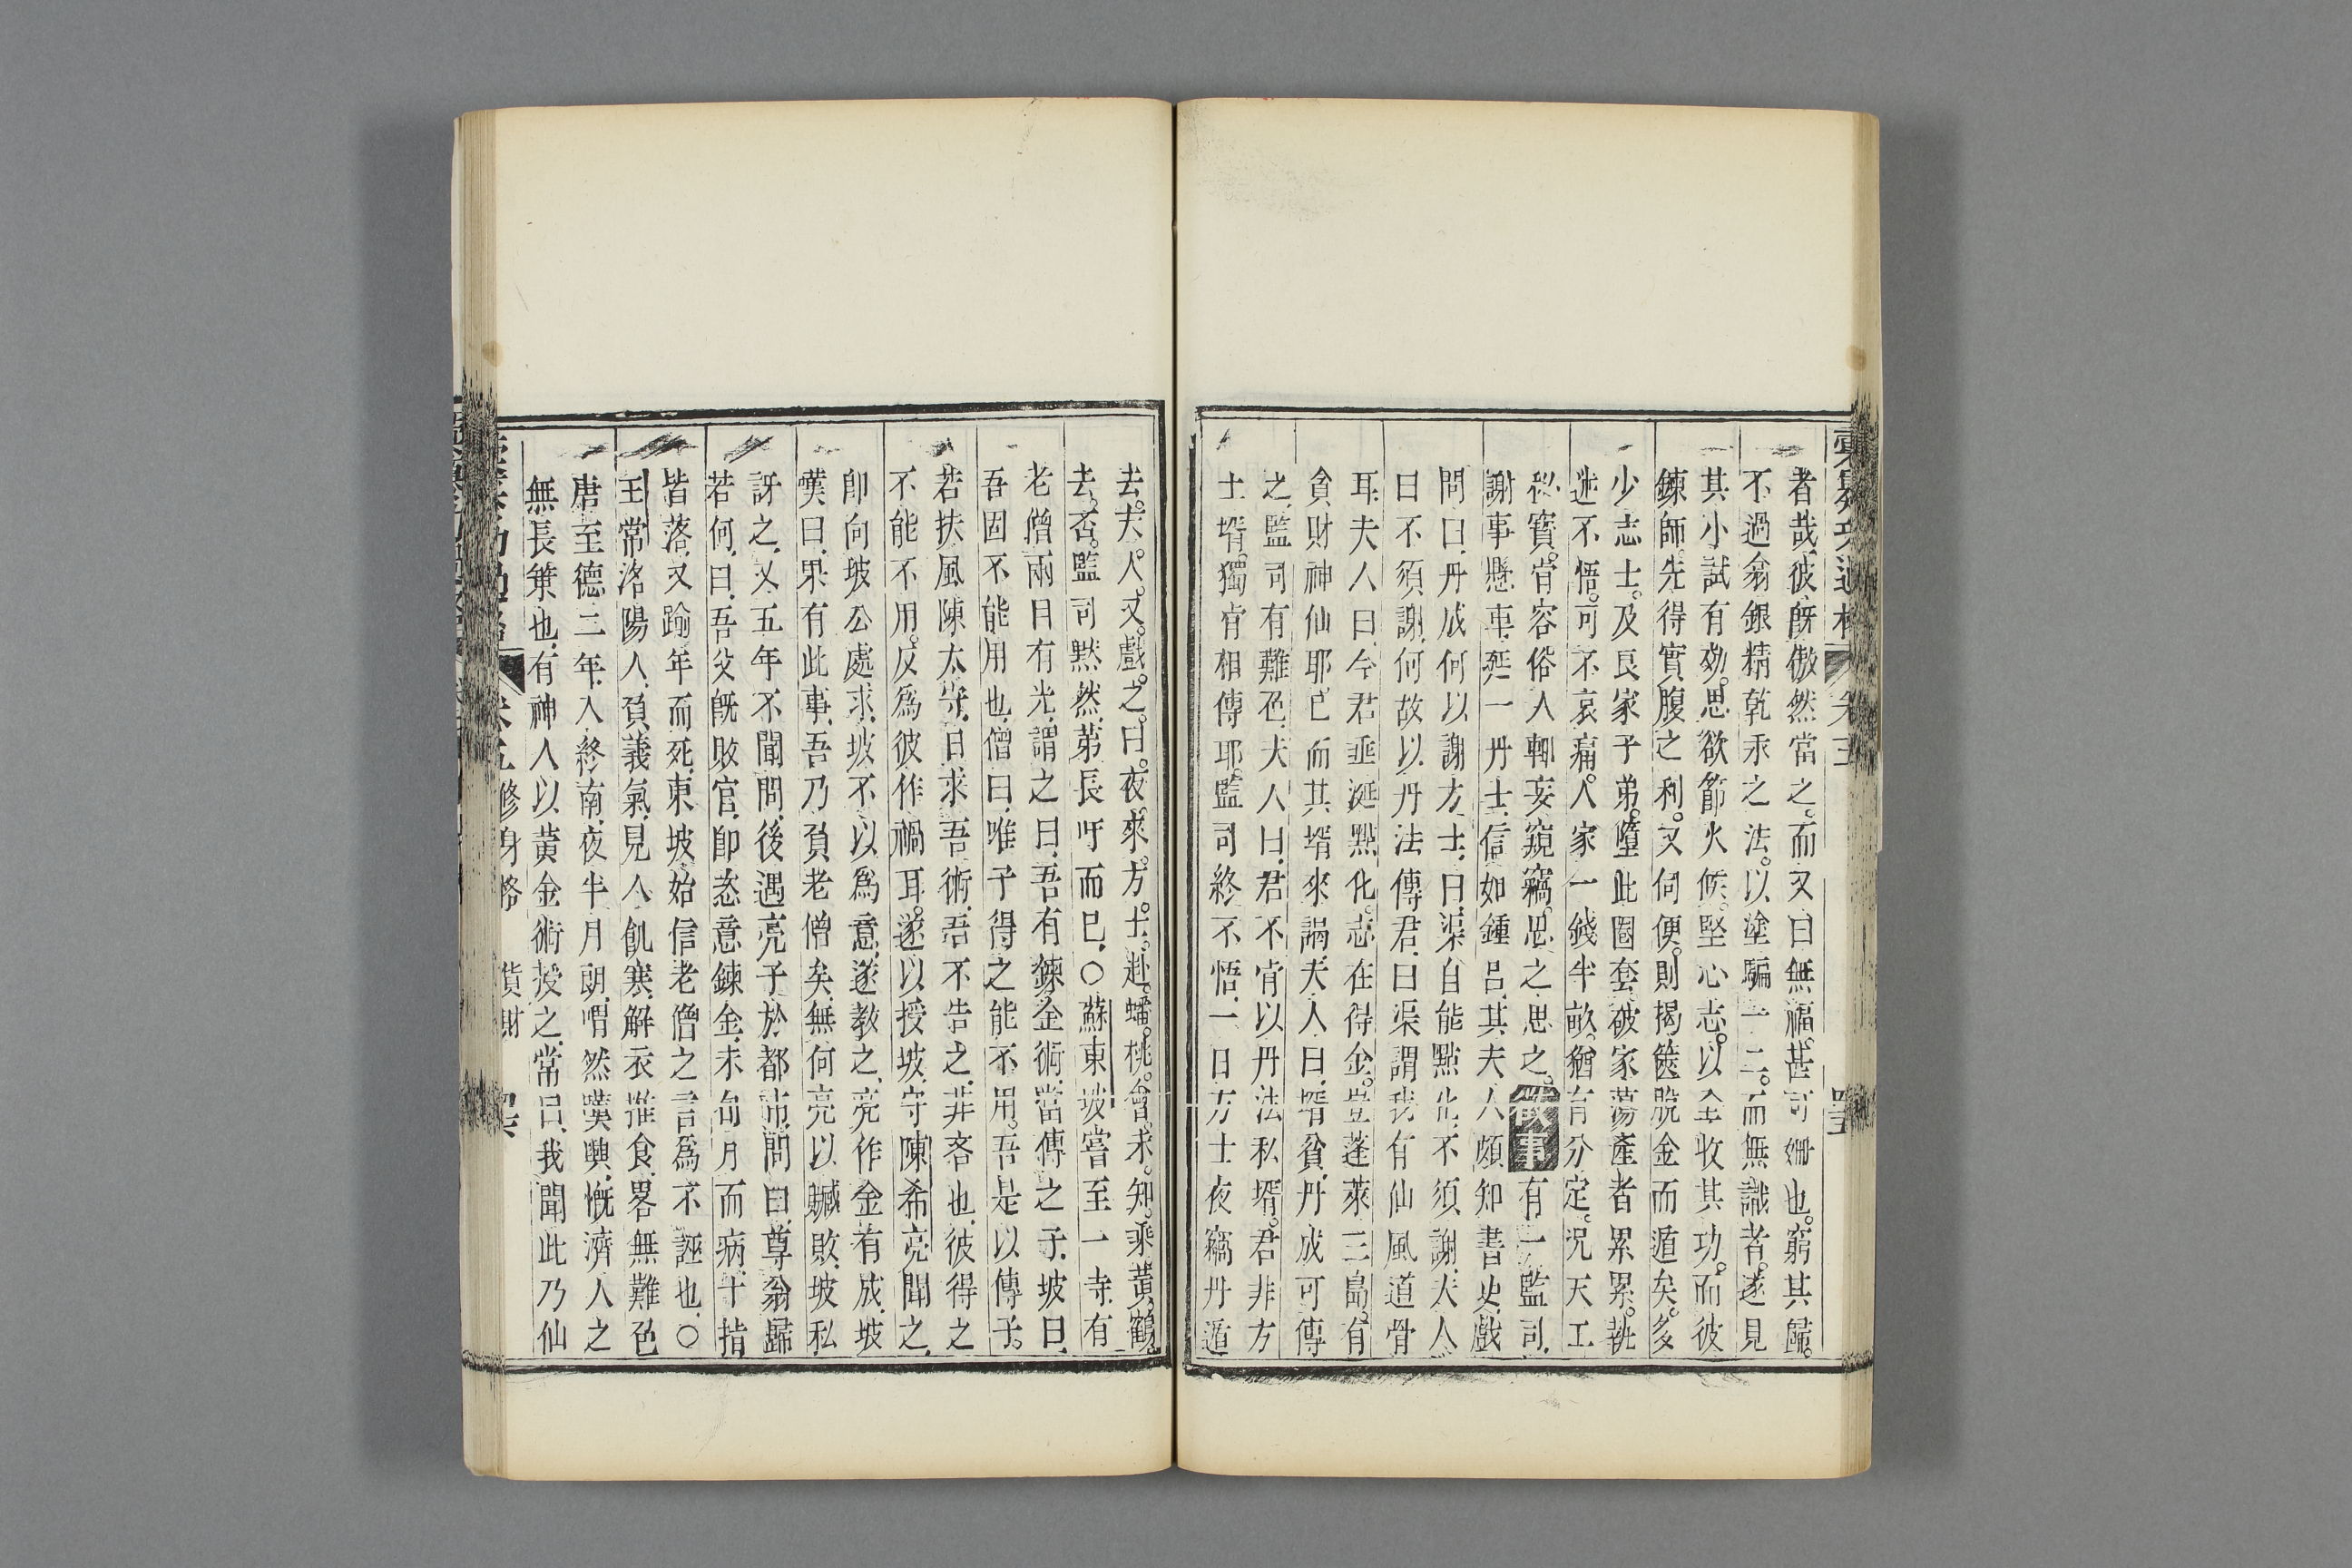 彙纂功過格 卷五
者哉。彼既傲然當之。而又曰無福。甚可姍也。窮其歸。
不過翕銀精乾汞之法。以塗騙一二。而無識者。遂見
其小試有効。思欲節火候。堅心志。以全收其功。而彼
鍊師。先得實腹之利。又伺便。則揭篋脫金而遁矣。多
少志士。及良家子弟。墮此圈套。破家蕩產者累累。執
迷不悟。可不哀痛。人家一錢半畝。猶有分定。況天工
秘寶。肯容俗人輒妄窺竊。思之思之。徵事有一監司、
謝事懸車、延一丹士、信如鍾呂、其夫人頗知書史、戲
問曰、丹成何以謝方士、曰、渠自能點化、不須謝、夫人
曰不須謝、何故以丹法傳君、曰渠謂我有仙風道骨
耳、夫人曰、今君垂涎點化。志在得金。豈蓬萊三島。有
貪財神仙耶、已而其壻來謁、夫人曰、壻貧、丹成可傳
之、監司有難色、夫人曰、君不肯以丹法私壻。君非方
士壻。獨肯相傳耶。監司終不悟、一日方士夜竊丹遁
去。夫。人。又。戲。之。曰。夜。來。方。士。赴。蟠。桃。會。未。知。乘。黃。鶴。
去。否。監司默然、第長吁而已、○蘇東坡嘗至一寺、有
老僧兩目有光、謂之曰、吾有鍊金術、當傳之子、坡曰、
吾固不能用也、僧曰、唯子得之能不用。吾是以傳子。
若扶風陳太守、日求吾術、吾不告之、非吝也、彼得之
不能不用。反爲彼作禍耳。遂以授坡、守陳希亮聞之、
卽向坡公處求、坡不以爲意、遂教之、亮作金有成、坡
嘆曰、果有此事、吾乃負老僧矣、無何亮以贓敗、坡私
訝之、又五年不聞問、後遇亮子於都市、問曰、尊翁歸
若何、曰、吾父既敗官、卽恣意鍊金、未旬月而病、十指
皆落、又踰年而死、東坡始信老僧之言爲不誣也、○
王常洛陽人、負義氣、見人飢寒、解衣推食、畧無難色
唐至德二年、入終南、夜半月朗、喟然嘆興、慨濟人之
無長筞也、有神人以黃金術授之、常曰、我聞此乃仙
卷五 修身格 貨財